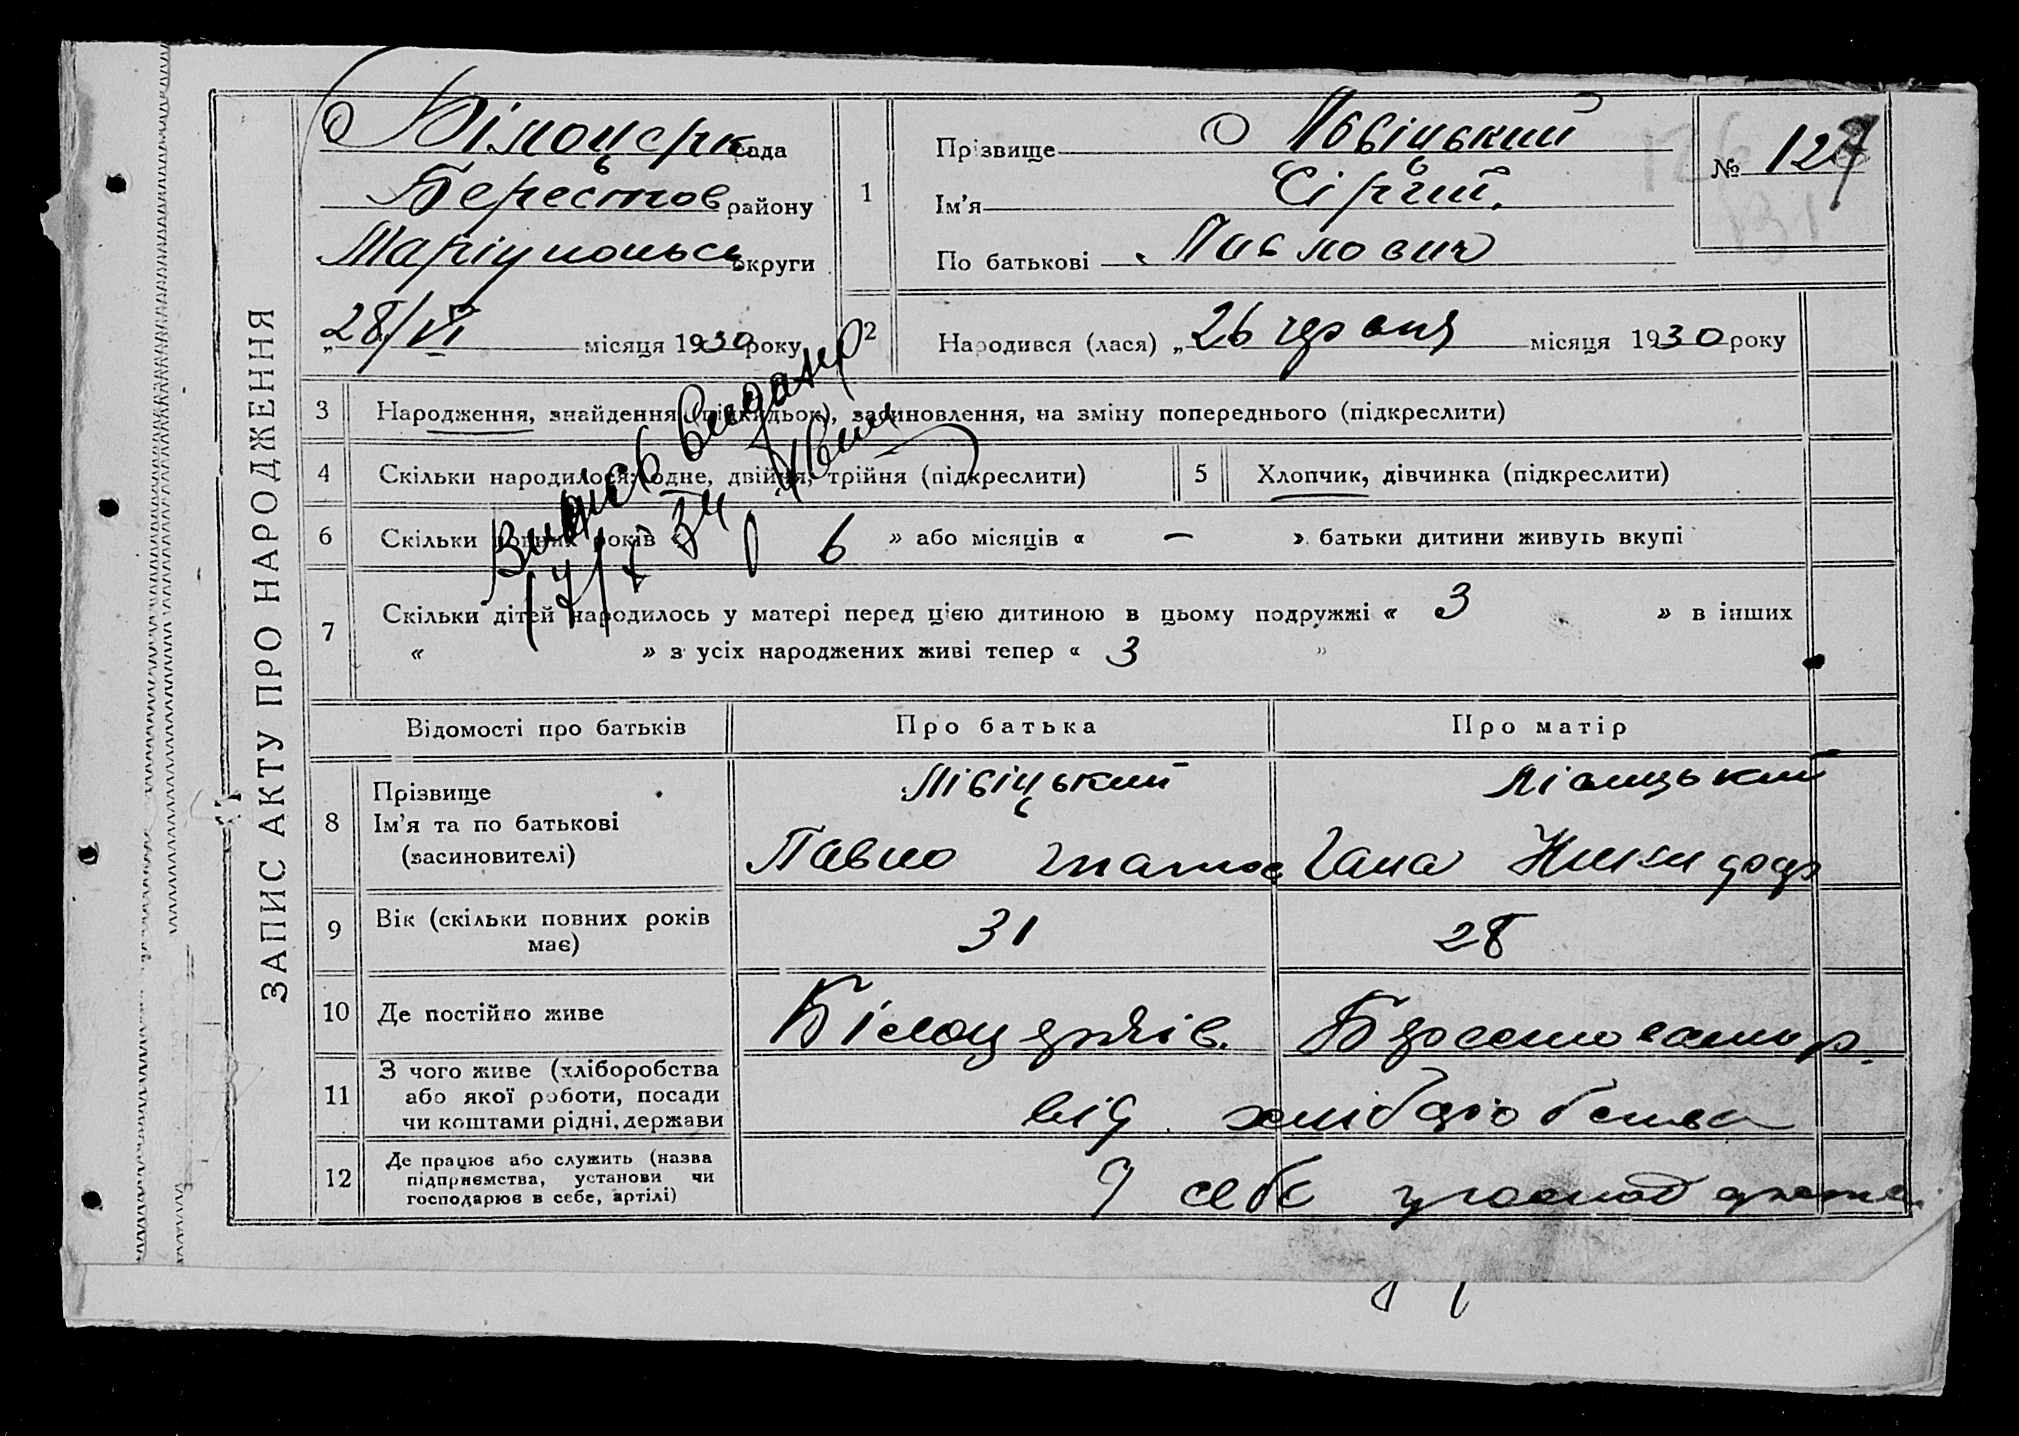 ЗАПИС АКТУ ПРО НАРОДЖЕННЯ
Білоцерк рада
Берестов району
Маріупольськ округи
„28/VI місяця 1930 року
1
Прізвище Львіцький
Ім'я Сіргий.
По батькові Павлович
№ 127
2 Народився (лася) „26 червня місяця 1930 року
3 Народження, знайдення (підкидьок), засиновлення, на зміну попереднього (підкреслити)
4 Скільки народилося: одне, двійня, трійня (підкреслити)
5 Хлопчик, дівчинка (підкреслити)
6 Скільки повних років « 6 » або місяців « — » батьки дитини живуть вкупі
7 Скільки дітей народилось у матері перед цією дитиною в цьому подружжі « 3 » в інших
« » з усіх народжених живі тепер « 3 »
17/X 34
Відомості про батьків Про батька Про матір
8 Прізвище
Ім'я та по батькові
(засиновителі)
Лівіцький
Павло
Гана
9 Вік (скільки повних років має) 31 28
10 Де постійно живе Білоцерків. Берестовський р.
11 З чого живе (хліборобства або якої роботи, посади чи коштами рідні, держави від хліборобства
12 Де працює або служить (назва підприємства, установи чи господарює в себе, артілі) У себе